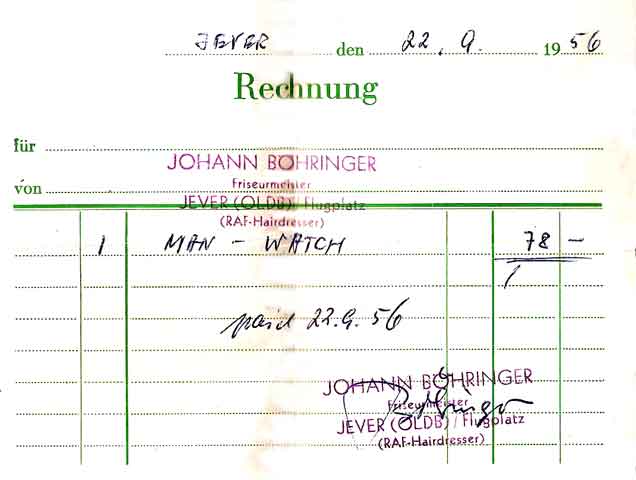 JEVER den 22. 9. 1956
Rechnung
für
JOHANN BÖHRINGER
Friseurmeister
von
JEVER (OLDB) / Flugplatz
(RAF-Hairdresser)
1 MAN - WATCH 78 -
paid 22.9.56
JOHANN BÖHRINGER
Friseurmeister
JEVER (OLDB) / Flugplatz
(RAF-Hairdresser)